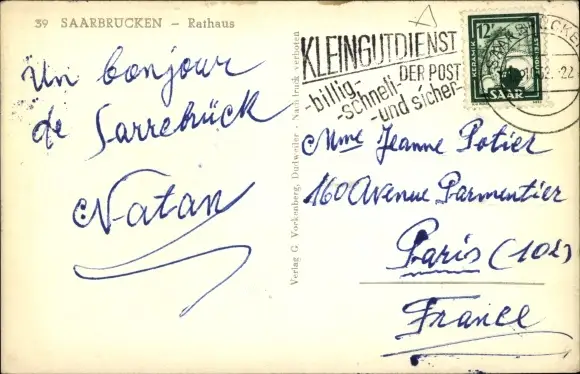 39 SAARBRÜCKEN – Rathaus
Un bonjour
de Sarrebrück
Natan
Verlag G. Vockenberg, Dudweiler - Nachdruck verboten
KLEINGUTDIENST
DER POST
-billig-
-schnell-
-und sicher-
12F
KERAMIK
SAAR
Mme Jeanne Potier
160 Avenue Parmentier
Paris (10è)
France